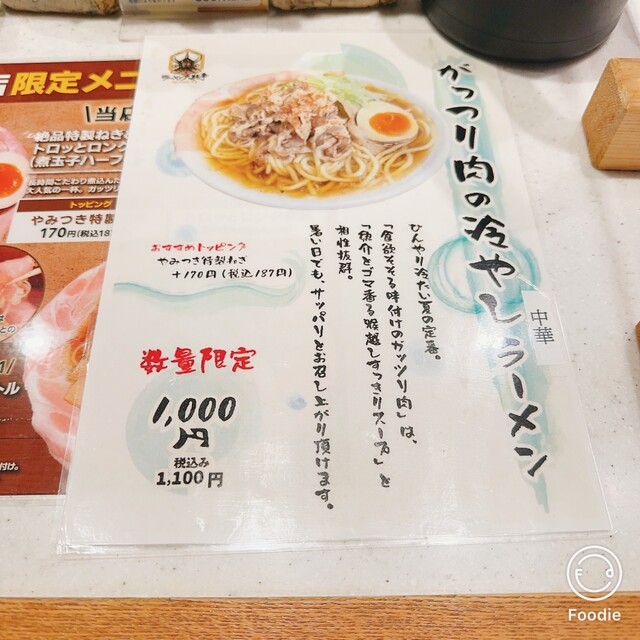 がっつり肉の冷やしラーメン
中華
ひんやり冷たい夏の定番。
「食欲そそる味付けのガッツリ肉」は、
「魚介とゴマ香る喉越しすっきりスープ」と
相性抜群。
暑い日でも、サッパリとお召し上がり頂けます。
おすすめトッピング
やみつき特製ねぎ
+170円(税込187円)
数量限定
1,000
円
税込み
1,100円
限定メニ
\当店
絶品特製ねぎ
トロッとロング
(煮玉子ハーフ
長時間こだわり煮込んだ
大人気の一杯。ガッツリ
トッピング
やみつき特製
170円(税込18
Foodie